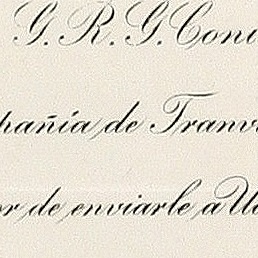 G. R. G. Con
pañía de Tranv
or de enviarle a U